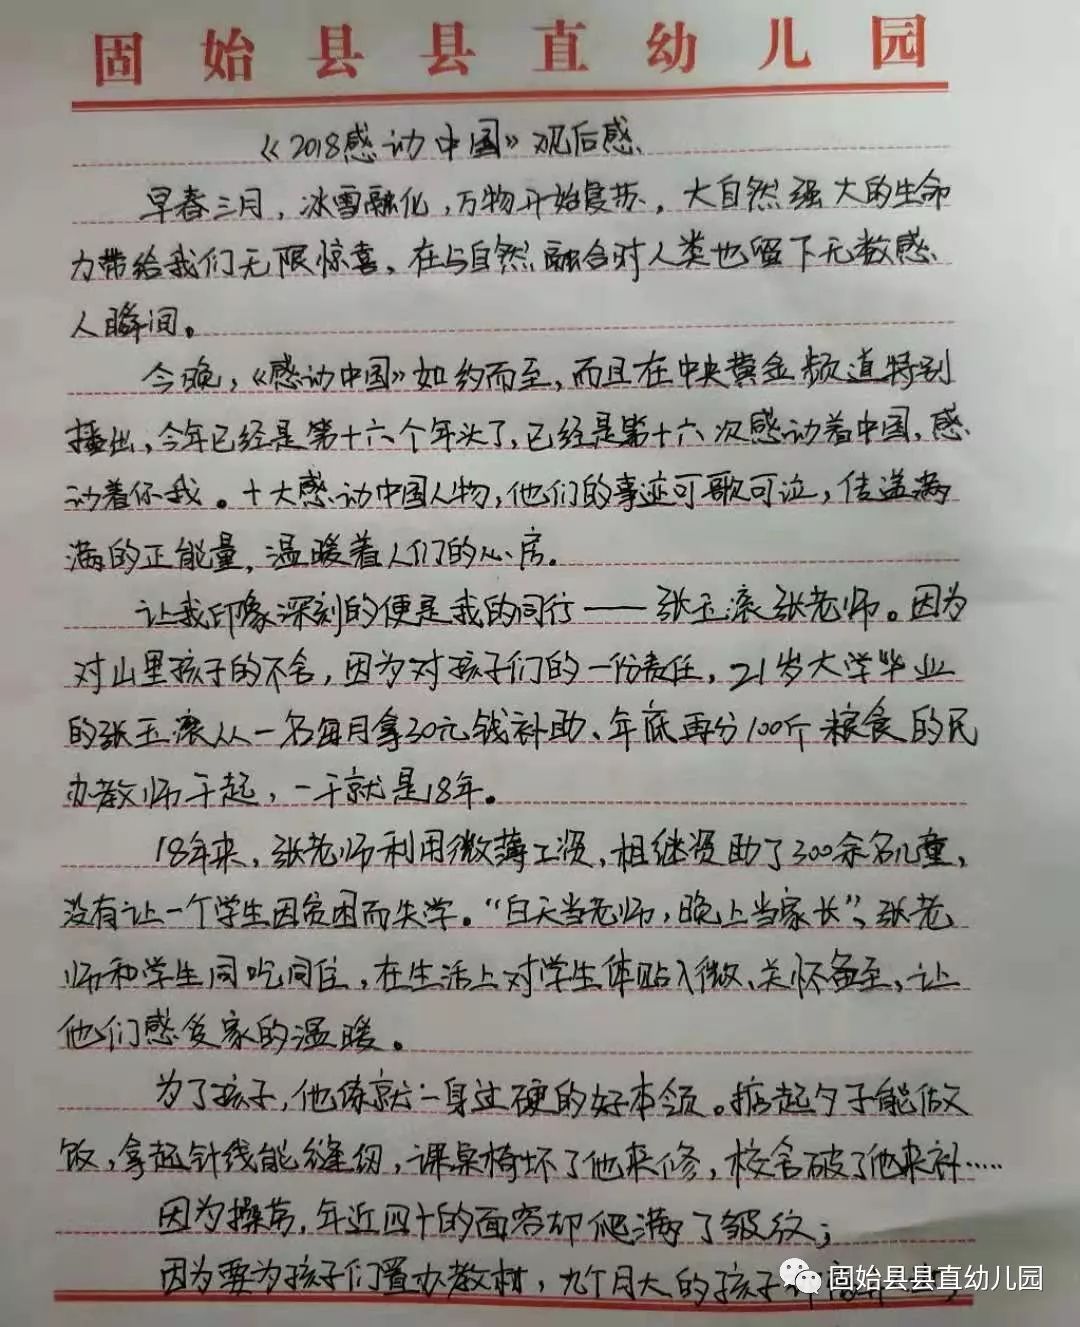 固始县县直幼儿园
《2018感动中国》观后感
早春三月，冰雪融化，万物开始复苏，大自然强大的生命
力带给我们无限惊喜，在与自然融合时人类也留下无数感
人瞬间。
今晚，《感动中国》如约而至，而且在中央黄金频道特别
播出，今年已经是第十六个年头了，已经是第十六次感动着中国，感
动着你我。十大感动中国人物，他们的事迹可歌可泣，传递满
满的正能量，温暖着人们的心房。
让我印象深刻的便是我的同行——张玉滚张老师。因为
对山里孩子的不舍，因为对孩子们的一份责任，21岁大学毕业
的张玉滚从一名每月拿30元钱补助、年底再分100斤粮食的民
办教师干起，一干就是18年。
18年来，张老师利用微薄工资，相继资助了300余名儿童，
没有让一个学生因贫困而失学。“白天当老师，晚上当家长”，张老
师和学生同吃同住，在生活上对学生体贴入微、关怀备至，让
他们感受家的温暖。
为了孩子，他练就一身过硬的好本领。掂起勺子能做
饭，拿起针线能缝纫，课桌椅坏了他来修，校舍破了他来补……
因为操劳，年近四十的面容却爬满了皱纹；
因为要为孩子们置办教材，九个月大的孩子
固始县县直幼儿园